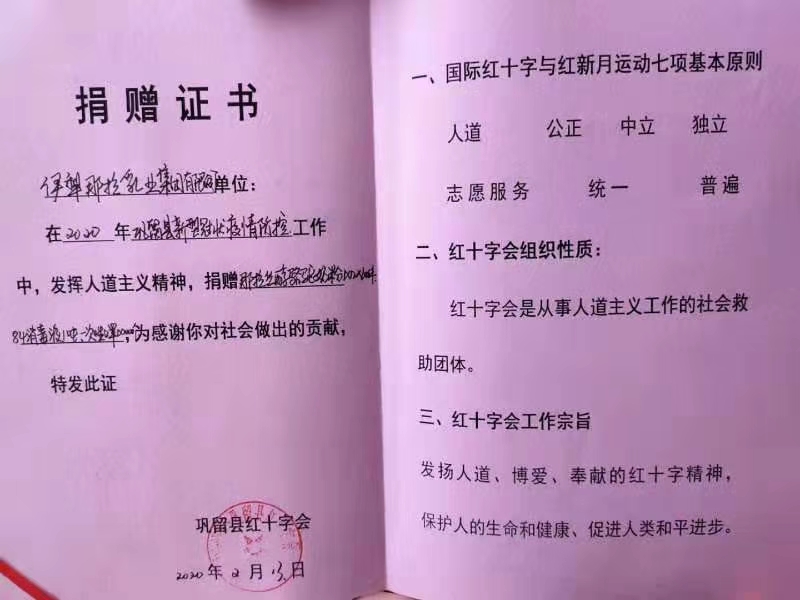 捐赠证书
伊犁那拉乳业集团有限公司单位：
在 2020 年巩留县新型冠状疫情防控工作
中，发挥人道主义精神，捐赠那拉丝醇
84消毒液1吨、，为感谢你对社会做出的贡献，
特发此证
巩留县红十字会
2020 年 2 月 13 日
一、国际红十字与红新月运动七项基本原则
人道 公正 中立 独立
志愿服务 统一 普遍
二、红十字会组织性质：
红十字会是从事人道主义工作的社会救
助团体。
三、红十字会工作宗旨
发扬人道、博爱、奉献的红十字精神，
保护人的生命和健康、促进人类和平进步。